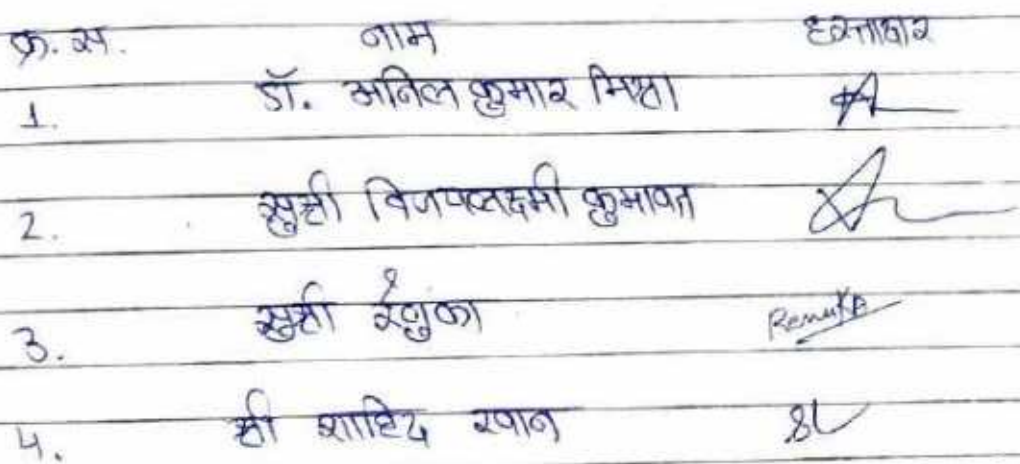 क्र. स. नाम हस्ताक्षर
1. डॉ. अनिल कुमार मिश्रा
2. सुश्री विजयलक्ष्मी कुमावत
3. सुश्री रेणुका Renuka
4. श्री शाहिद खान